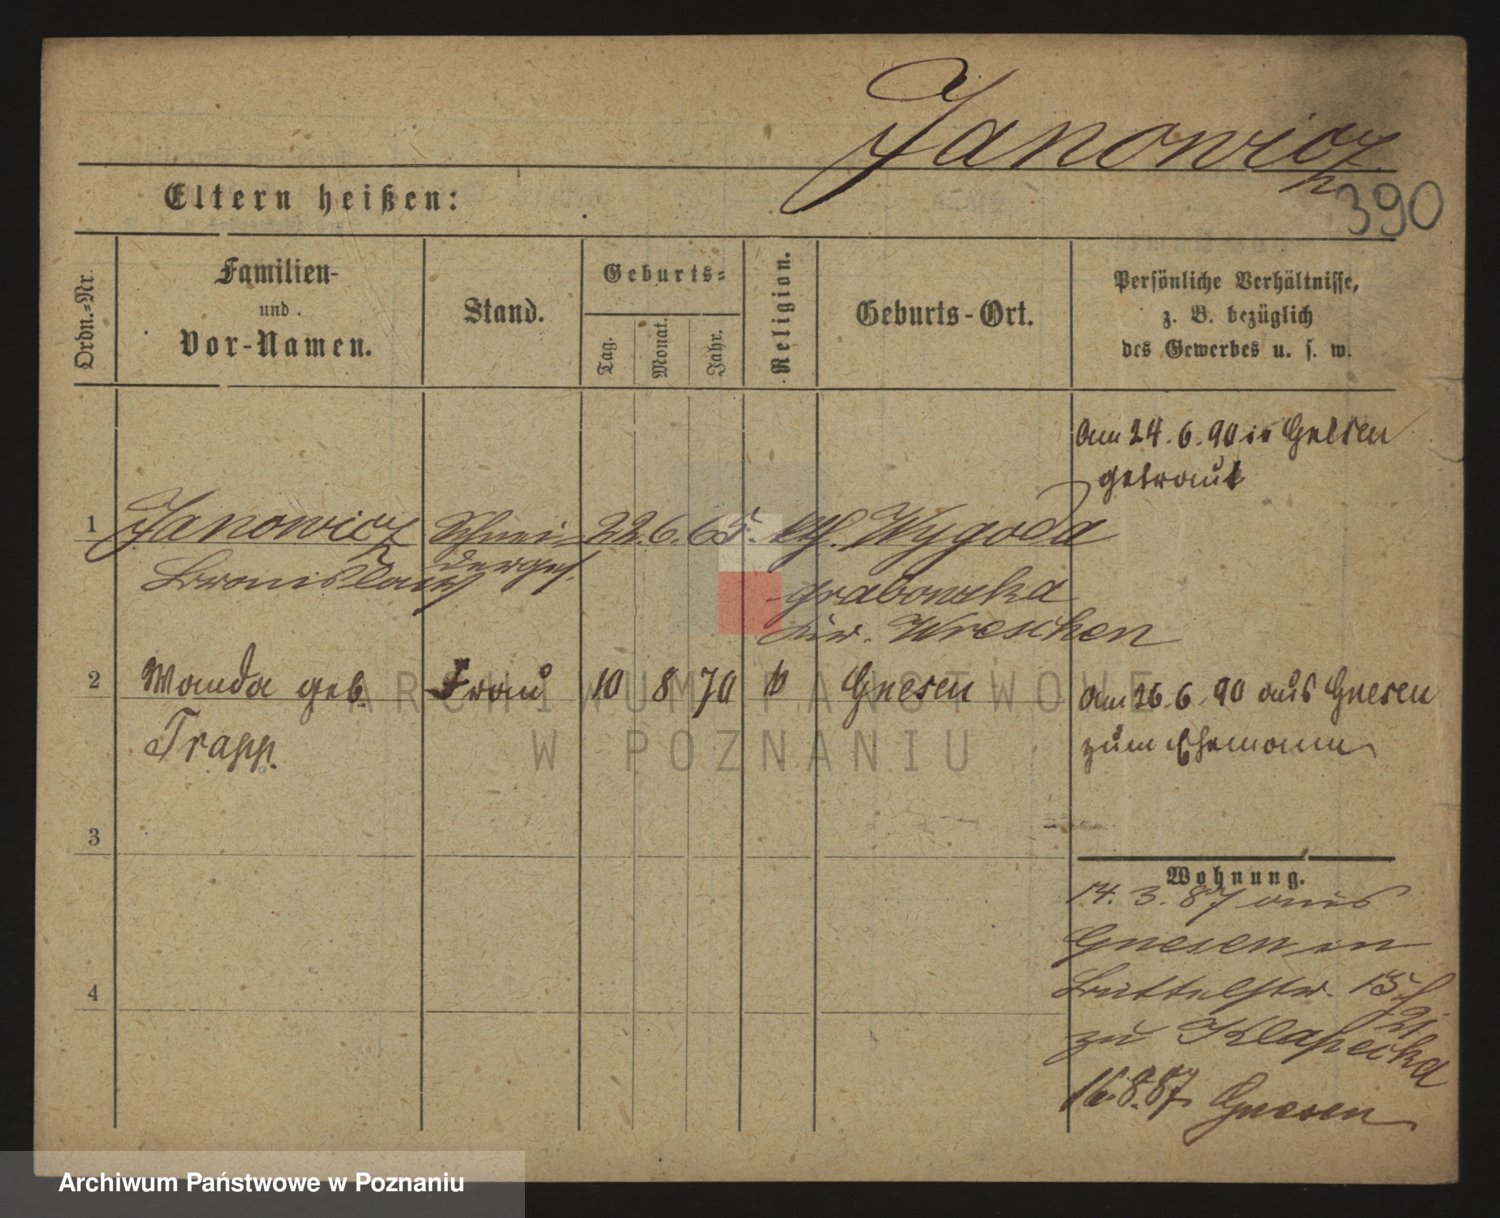 Janowicz
390
Eltern heißen:
Ordn.=Nr.
Familien-
und
Vor-Namen.
Stand.
Geburts=
Tag.
Monat.
Jahr.
Religion.
Geburts-Ort.
Persönliche Verhältnisse,
z. B. bezüglich
des Gewerbes u. s. w.
Am 24.6.90 in Gnesen
getraut
1 Janowicz Schnei- 22. 6. 65. kth. Wygoda
Bronislaw derges. grabowska
Kr. Wreschen
2 Wanda geb. Frau 10 8 70 k Gnesen Am 26.6.90 aus Gnesen
Trapp. zum Ehemann
3
Wohnung.
14. 3. 87 aus
Gnesen in
4
Büttelstr. 15
zu Klapecka
16.8.87. Gnesen
ARCHIWUM PAŃSTWOWE
W POZNANIU
Archiwum Państwowe w Poznaniu